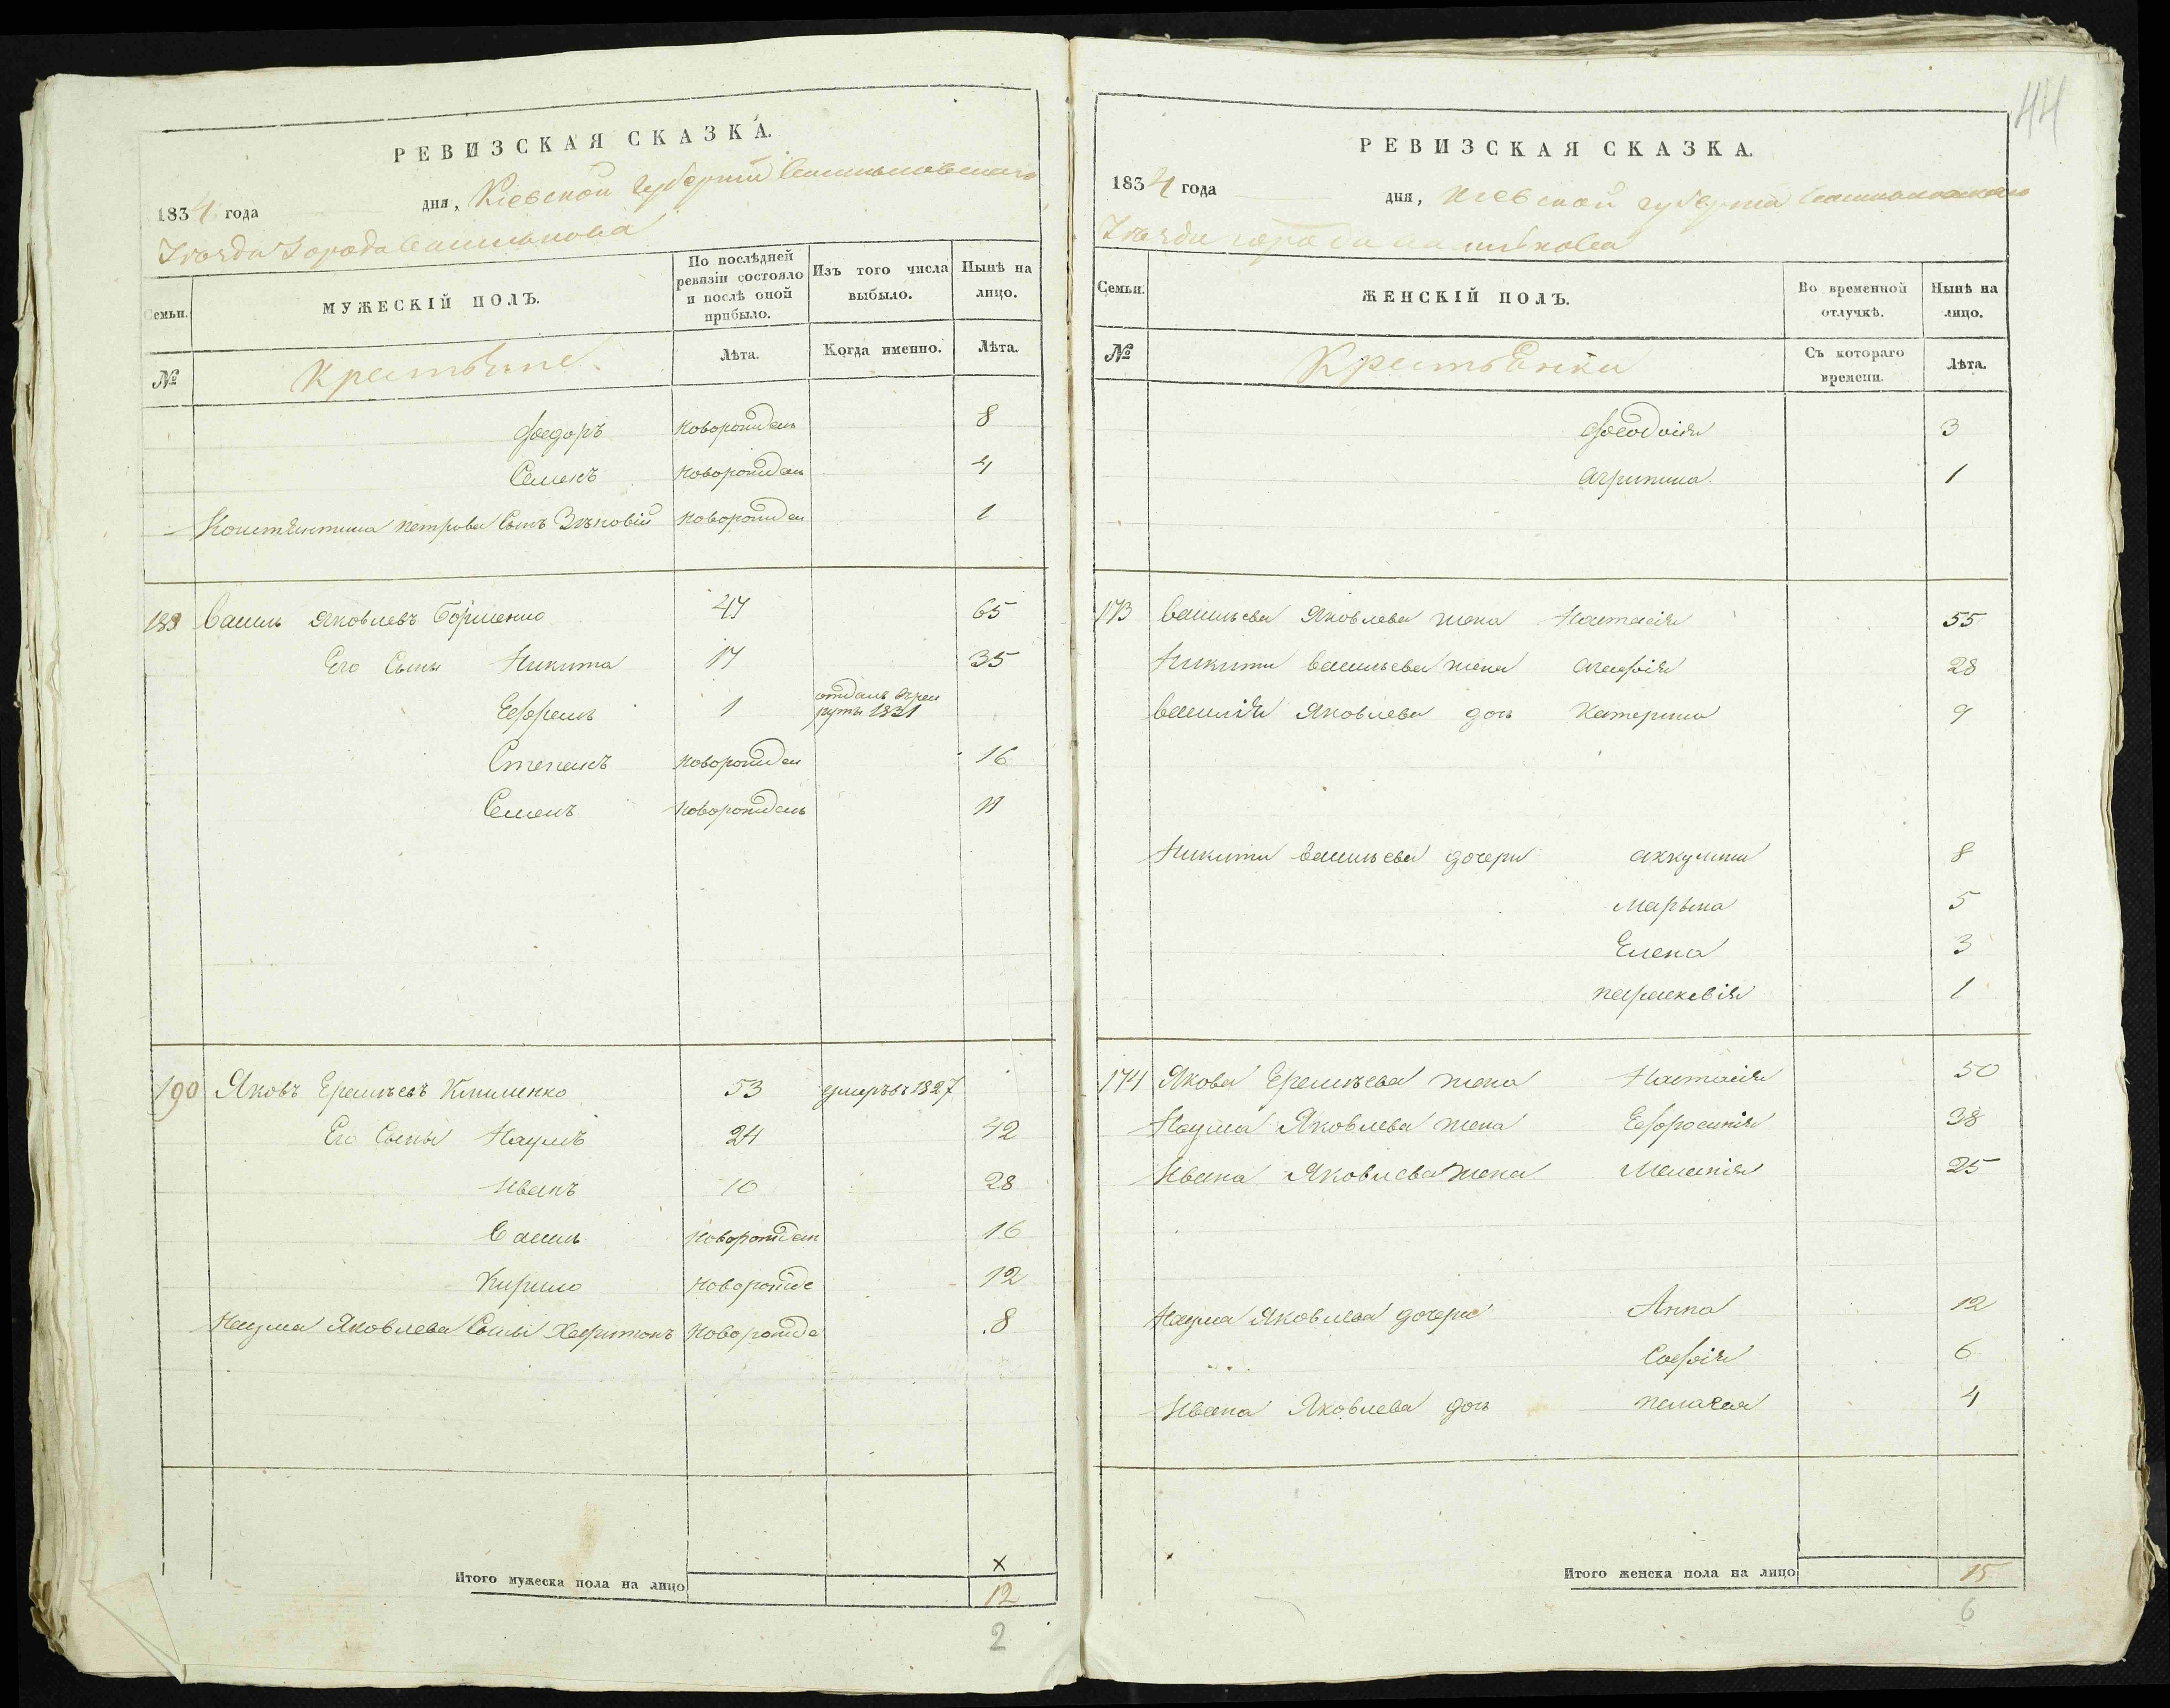 РЕВИЗСКАЯ СКАЗКА.
1834 года дня, Кіевской Губерніи Васильковскаго
Уѣзда Города Василькова
Семьи.
МУЖЕСКІЙ ПОЛЪ.
По послѣдней ревизіи состояло и послѣ оной прибыло.
Изъ того числа выбыло.
Нынѣ на лицо.
№
Крестьяне.
Лѣта.
Когда именно.
Лѣта.
Федоръ Новорожден 8
Семенъ новорожден 4
Константина петрова Сынъ новорожден 1
189 Василь Яковлевъ 47 65
Его Сыны Никита 17 35
Ефремъ 1 отданъ в рек
руты 1831
Степанъ новорожден 16
Семенъ новорожден 11
190 Яковъ Еремѣевъ Клименко 53 умеръ въ 1827
Его Сыны Наумъ 24 42
Иванъ 10 28
Василь новорожден 16
Кирило новорожде 12
Наума Яковлева Сыны Харитонъ новорожде 8
Итого мужеска пола на лицо
х
12
2
44
РЕВИЗСКАЯ СКАЗКА.
1834 года дня, Кіевской губерніи Васильковскаго
Уѣзда города Василькова
Семьи.
ЖЕНСКІЙ ПОЛЪ.
Во временной отлучкѣ.
Нынѣ на лицо.
№
Крестьянки
Съ котораго времени.
Лѣта.
Феодосія 3
Агрипина 1
173 Васильева Яковлева жена Настасія 55
Никити Васильева жена Агафія 28
Василія Яковлева дочь Катерина 9
Никити Васильева дочери 8
Марьяна 5
Елена 3
параскевія 1
174 Якова Еремѣева жена Настасія 50
Наума Яковлева жена Ефросинія 38
Ивана Яковлева жена Меланія 25
Наума Яковлева дочери Анна 12
Софія 6
Ивана Яковлева дочь пелагея 4
Итого женска пола на лицо 15
6